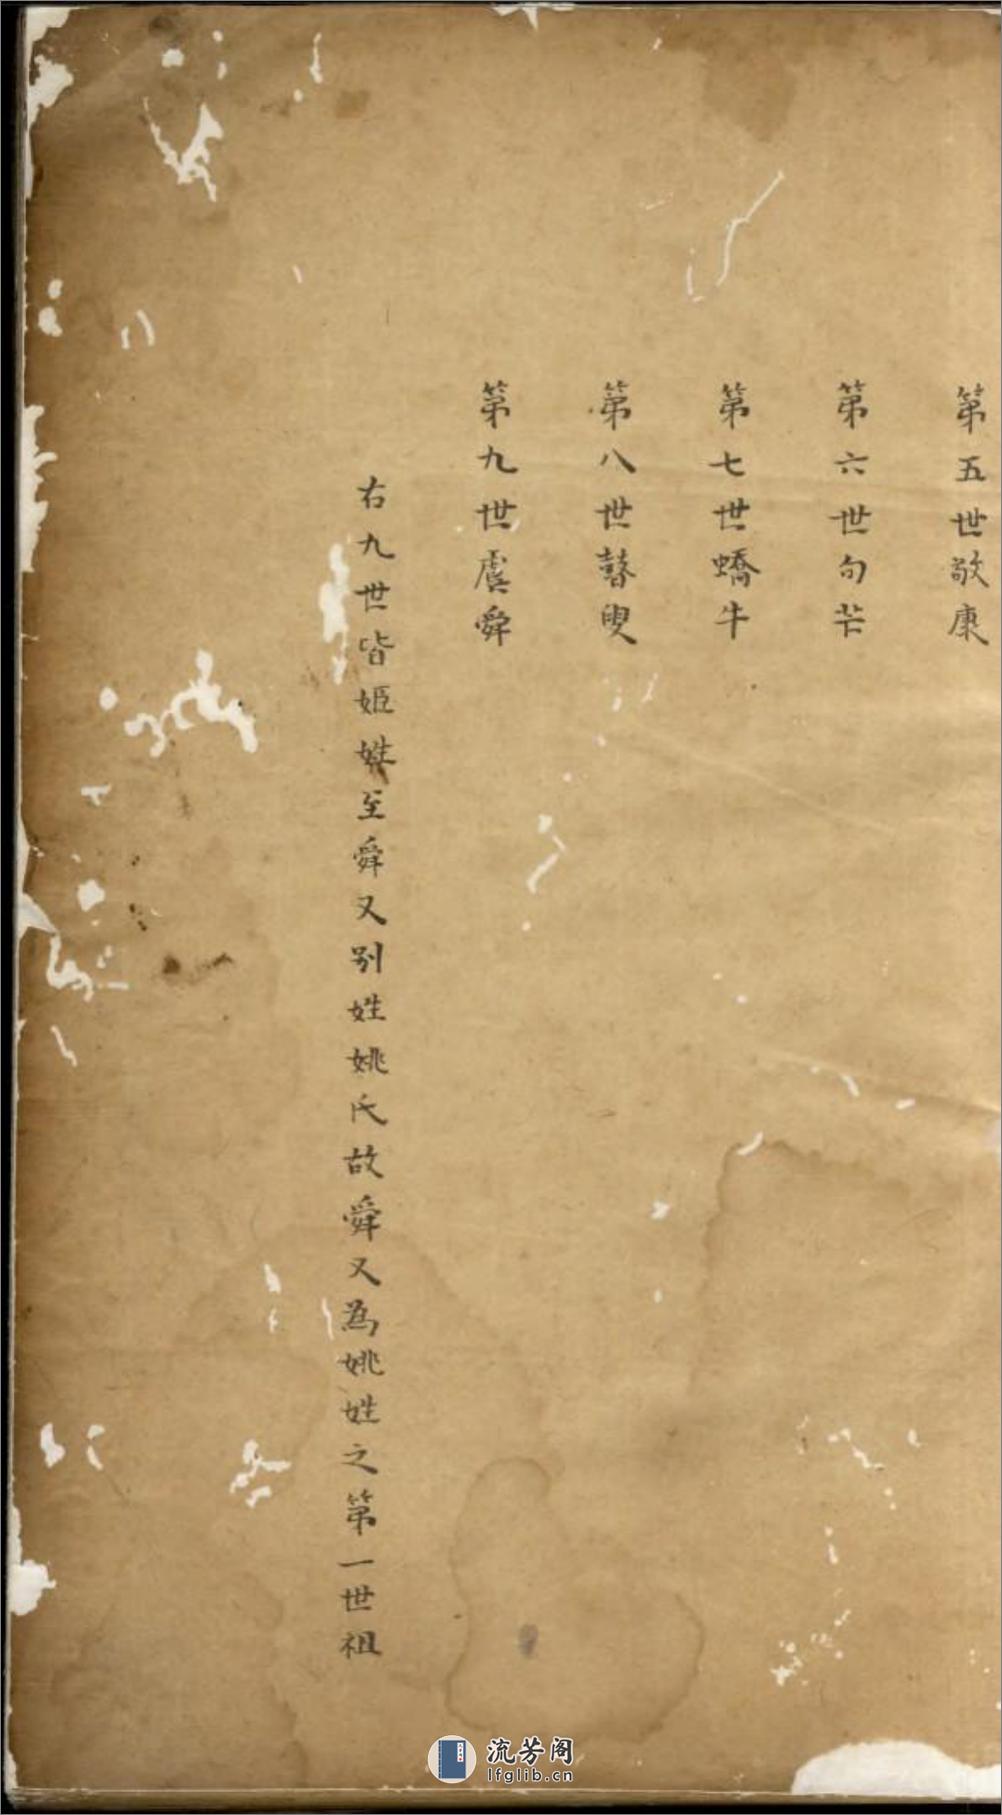 第五世敬康
第六世句芒
第七世蟜牛
第八世瞽叟
第九世虞舜
右九世皆姬姓至舜又别姓姚氏故舜又為姚姓之第一世祖
流芳阁
lfglib.cn